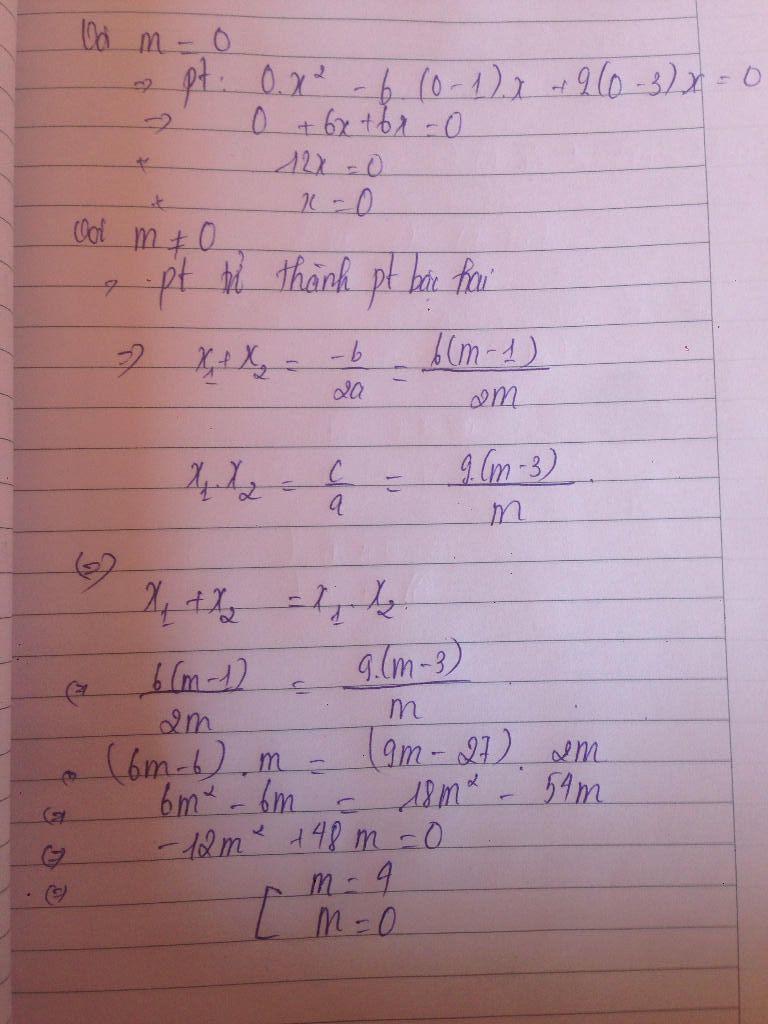 Với m = 0
=> pt: 0.x² - 6.(0-1).x + 9(0-3)x = 0
=> 0 + 6x + 6x = 0
12x = 0
x = 0
Với m ≠ 0
=> pt trở thành pt bậc hai
=> x₁ + x₂ = -b/2a = 6(m-1)/2m
x₁.x₂ = c/a = 9.(m-3)/m.
(=>)
x₁ + x₂ = x₁.x₂
<=> 6(m-1)/2m = 9.(m-3)/m
<=> (6m-6).m = (9m-27).2m
<=> 6m² - 6m = 18m² - 54m
<=> -12m² + 48m = 0
<=> [ m = 4
m = 0